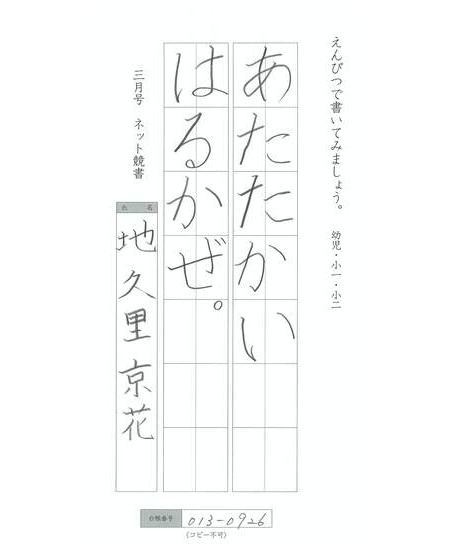 えんぴつで書いてみましょう。 幼児・小一・小二
あたたかい
はるかぜ。
三月号 ネット競書
氏 名
地久里京花
会員番号 013-0926
(コピー不可)